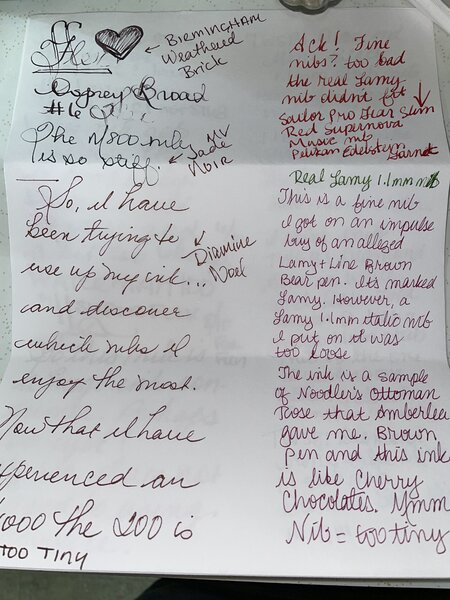 Flex
← BIRMINGHAM
Weathered
Brick
Osprey Broad
#6
The N800 nib
is so stiff. ← MV
Jade
Noir
So, I have
been trying to
use up my ink... Diamine
Noel
and discover
which nibs I
enjoy the most.
Now that I have
xperienced an
1000 the 200 is
TOO TINY
Ack! Fine
nibs? too bad
the real Lamy
nib didnt fit
Sailor Pro Gear Slim
Red Supernova
Music nib
Pelikan Edelstein
Garnet
Real Lamy 1.1mm nib
This is a fine nib
I got on an impulse
buy of an alleged
Lamy + Line Brown
Bear pen. Its marked
Lamy. However, a
Lamy 1.1mm italic nib
I put on it was
too loose
The ink is a sample
of Noodler's Ottoman
Rose that Amberlea
gave me. Brown
Pen and this ink
is like Cherry
Chocolates. Mmm
Nib = too tiny